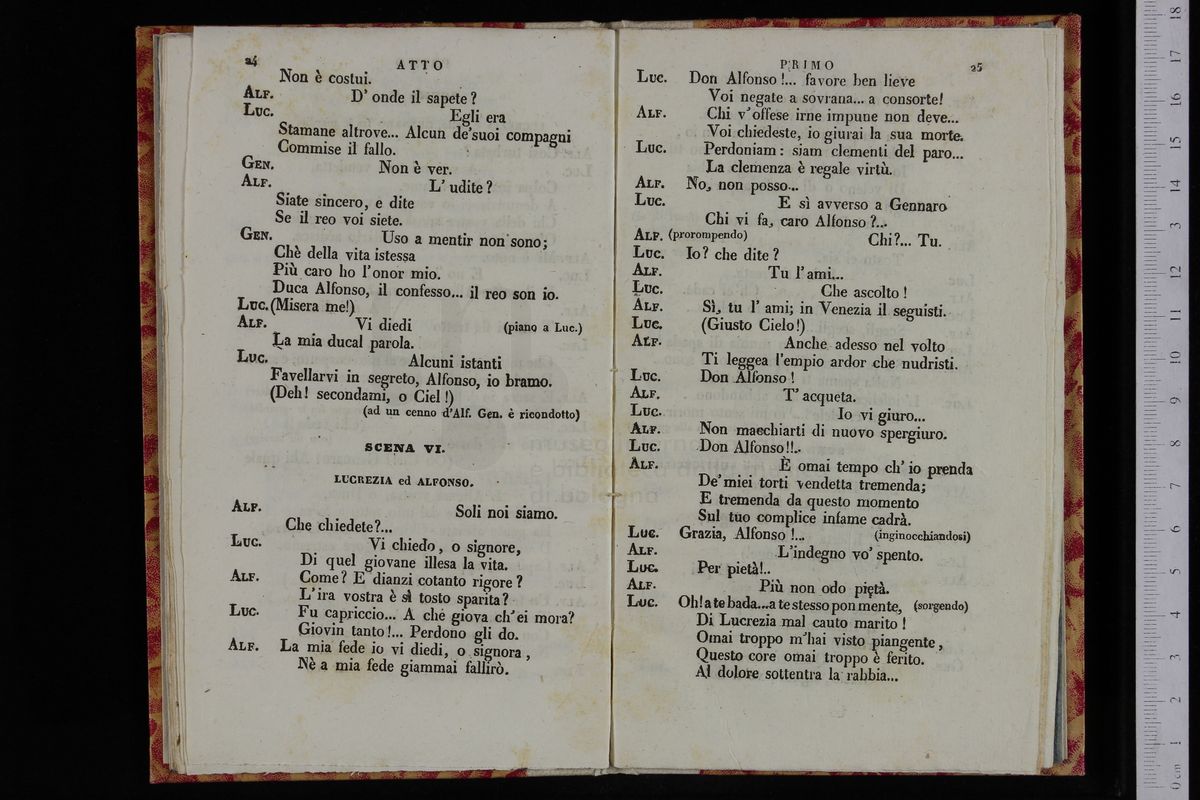 24 ATTO
Non è costui.
ALF. D' onde il sapete?
LUC. Egli era
Stamane altrove... Alcun de'suoi compagni
Commise il fallo.
GEN. Non è ver.
ALF. L' udite?
Siate sincero, e dite
Se il reo voi siete.
GEN. Uso a mentir non sono;
Chè della vita istessa
Più caro ho l'onor mio.
Duca Alfonso, il confesso... il reo son io.
LUC. (Misera me!)
ALF. Vi diedi (piano a Luc.)
La mia ducal parola.
LUC. Alcuni istanti
Favellarvi in segreto, Alfonso, io bramo.
(Deh! secondami, o Ciel!)
(ad un cenno d'Alf. Gen. è ricondotto)
SCENA VI.
LUCREZIA ed ALFONSO.
ALF. Soli noi siamo.
Che chiedete?...
LUC. Vi chiedo, o signore,
Di quel giovane illesa la vita.
ALF. Come? E dianzi cotanto rigore?
L'ira vostra è sì tosto sparita?
LUC. Fu capriccio... A chè giova ch'ei mora?
Giovin tanto!... Perdono gli do.
ALF. La mia fede io vi diedi, o signora,
Nè a mia fede giammai fallirò.
PRIMO 25
LUC. Don Alfonso!... favore ben lieve
Voi negate a sovrana... a consorte!
ALF. Chi v'offese irne impune non deve...
Voi chiedeste, io giurai la sua morte.
LUC. Perdoniam: siam clementi del paro...
La clemenza è regale virtù.
ALF. No, non posso...
LUC. E sì avverso a Gennaro
Chi vi fa, caro Alfonso?...
ALF. (prorompendo) Chi?... Tu.
LUC. Io? che dite?
ALF. Tu l'ami...
LUC. Che ascolto!
ALF. Sì, tu l' ami; in Venezia il seguisti.
LUC. (Giusto Cielo!)
ALF. Anche adesso nel volto
Ti leggea l'empio ardor che nudristi.
LUC. Don Alfonso!
ALF. T' acqueta.
LUC. Io vi giuro...
ALF. Non macchiarti di nuovo spergiuro.
LUC. Don Alfonso!!..
ALF. È omai tempo ch' io prenda
De'miei torti vendetta tremenda;
E tremenda da questo momento
Sul tuo complice infame cadrà.
LUC. Grazia, Alfonso!... (inginocchiandosi)
ALF. L'indegno vo' spento.
LUC. Per pietà!..
ALF. Più non odo pietà.
LUC. Oh! a te bada... a te stesso pon mente, (sorgendo)
Di Lucrezia mal cauto marito!
Omai troppo m'hai visto piangente,
Questo core omai troppo è ferito.
Al dolore sottentra la rabbia...